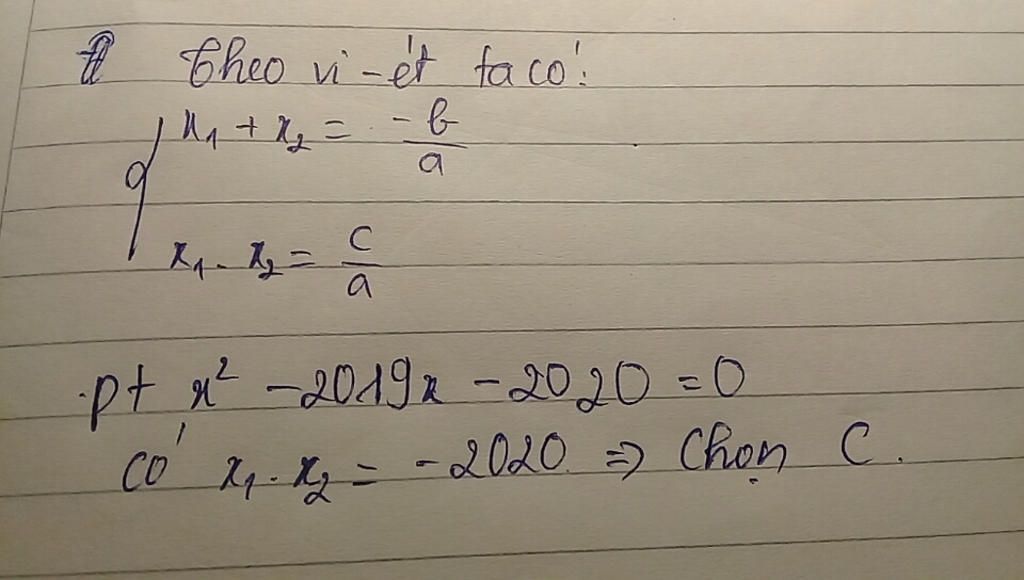 Theo vi-ét ta có:
x₁ + x₂ = -b/a
x₁ . x₂ = c/a
.pt x² - 2019x - 2020 = 0
có x₁ . x₂ = -2020 ⇒ Chọn C.